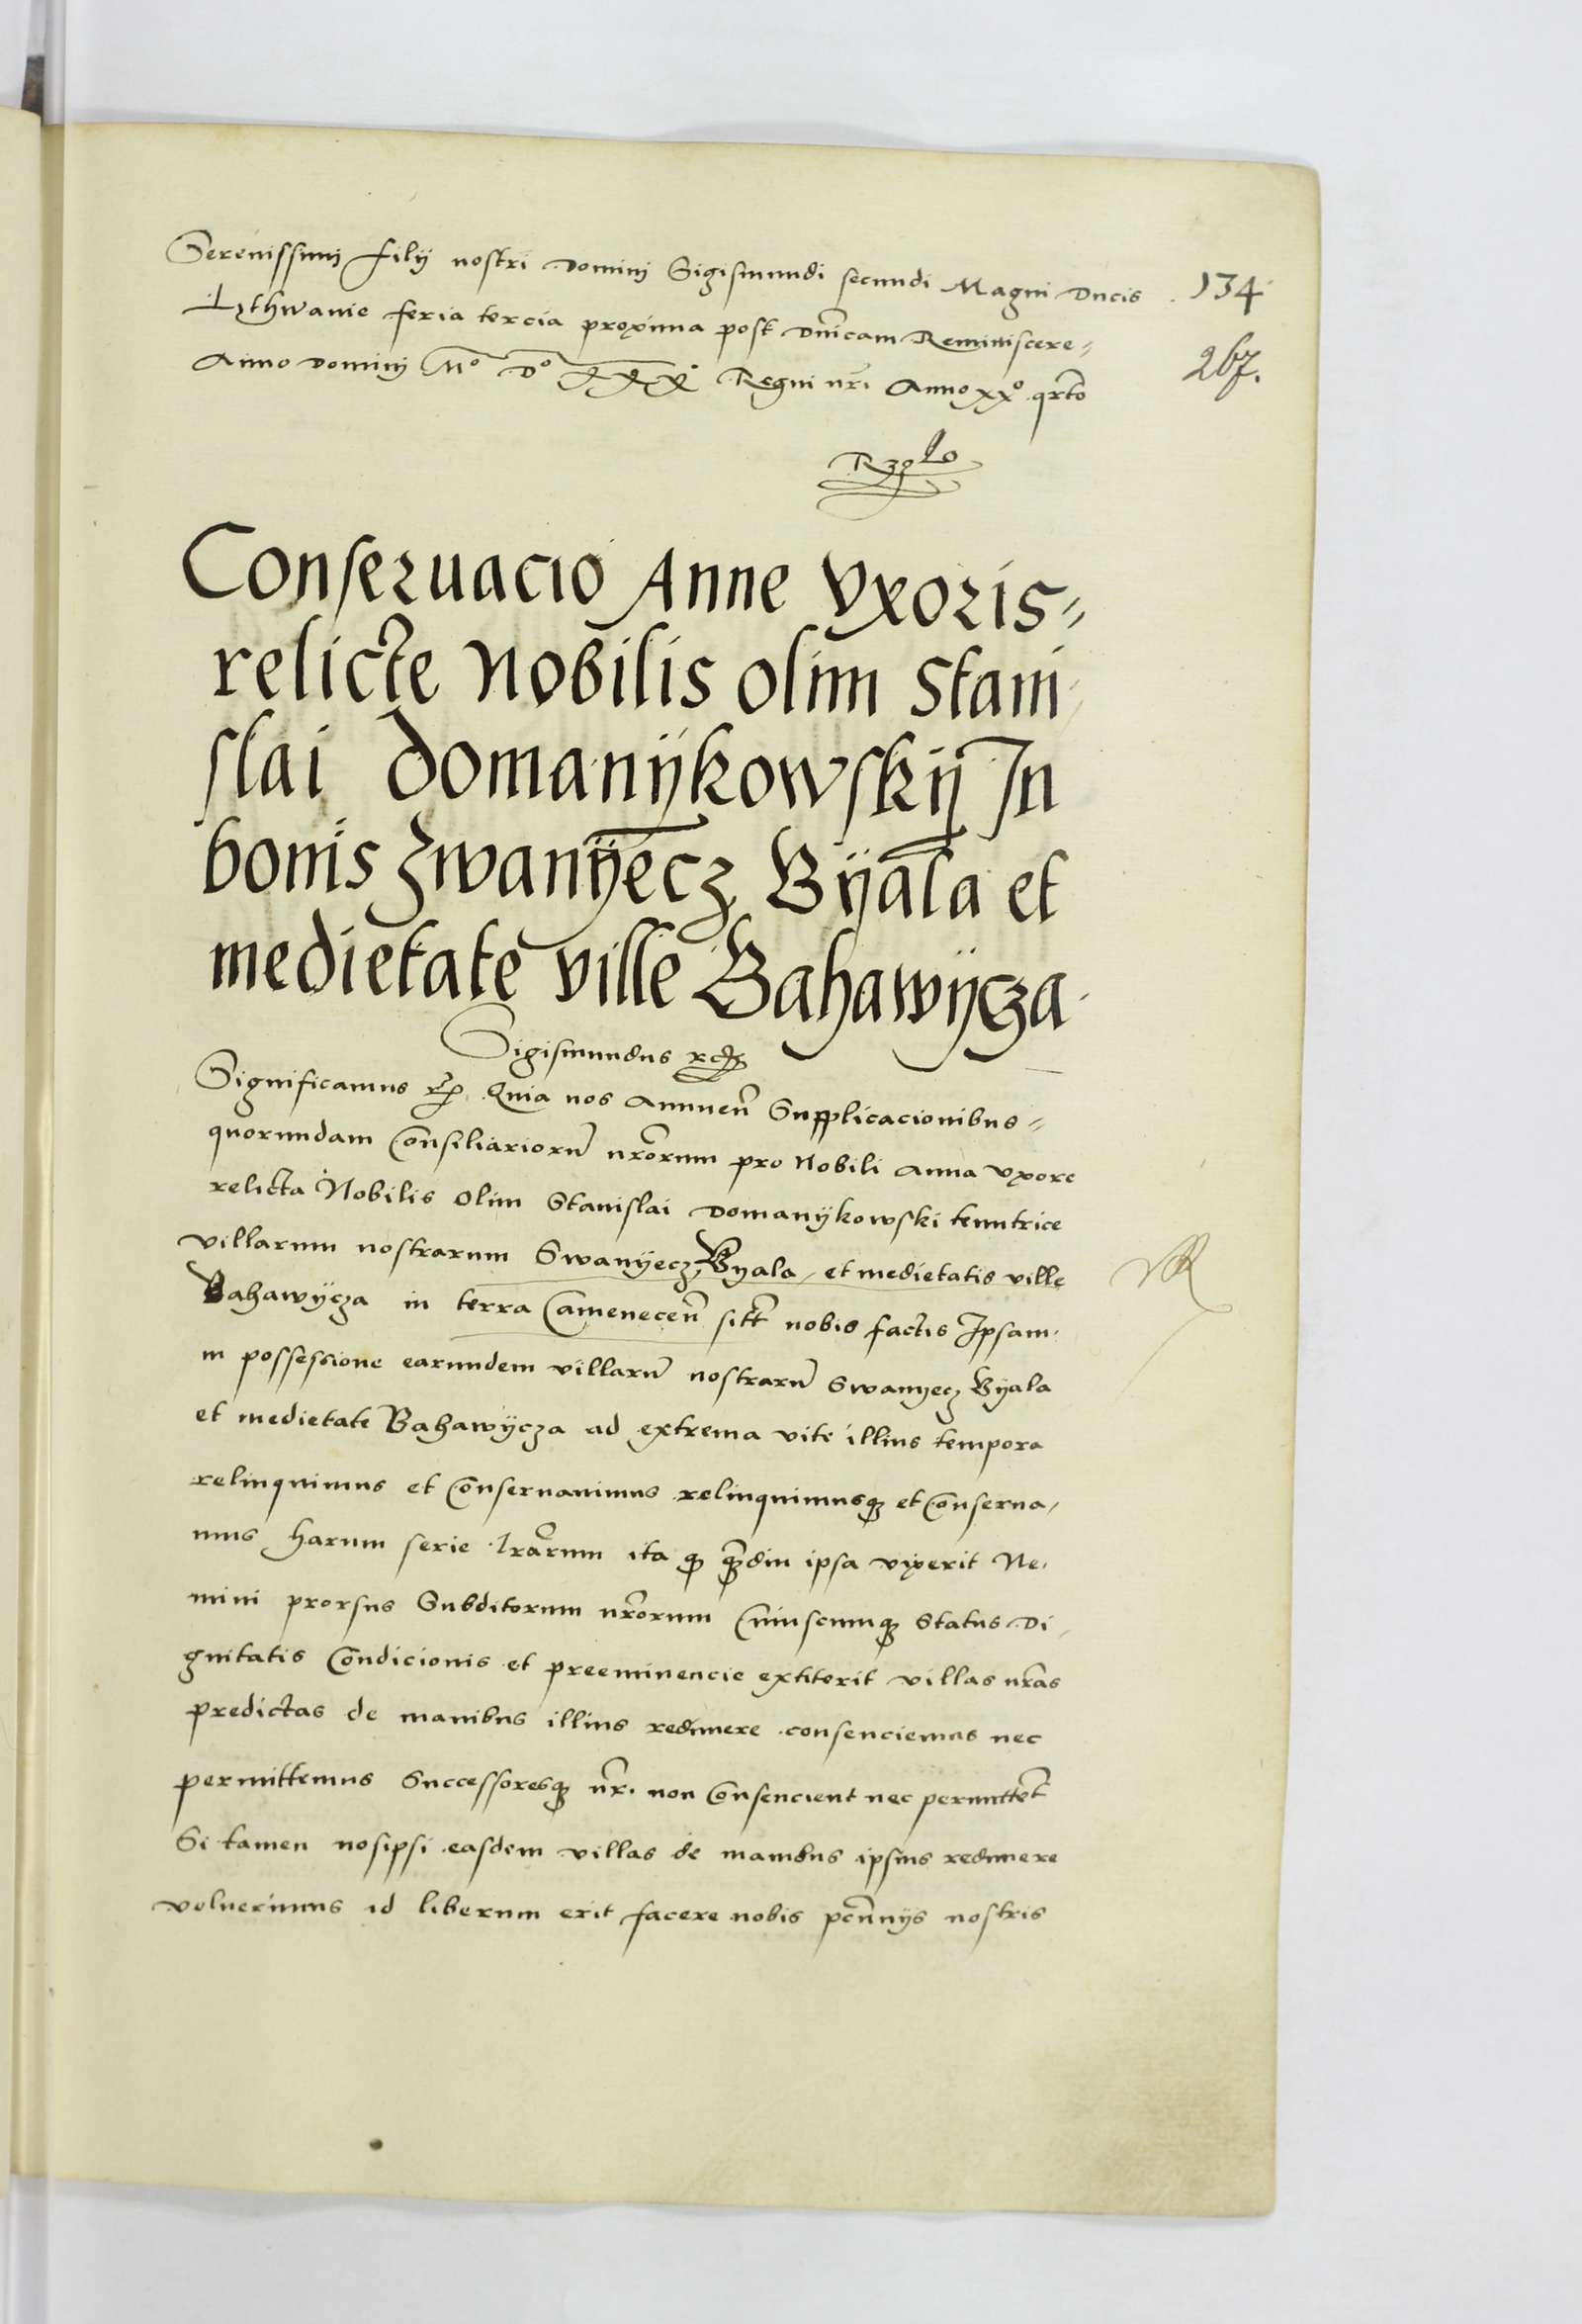 Serenissimi filij nostri Dominij Sigismundi secundi Magni Ducis
134
Lythwanie feria tercia proxima post dnicam Reminiscere
267.
Anno Dominij Mo Do XXX Regni nri Anno xxo qrto
Conseruacio Anne Vxoris
relicte Nobilis olim Stani
slai Domanijkowskij In
bonis Zwanijecz Bijala et
medietate ville Bahawijcza
Sigismundus
Significamus Quia nos Annuen Supplicacionibus
quorundam Consiliarioru nrorum pro Nobili Anna Vxore
relicta Nobilis Olim Stanislai Domanijkowski tenutrice
villarum nostrarum Swanijecz, Byala, et medietatis ville
Bahawijcza in terra Camenecen sitt nobis factis Ipsam
in possessione earundem villaru nostraru Swanyecz Byala
et medietate Bahawijcza ad extrema vite illius tempora
relinquimus et Conseruauimus relinquimusq et Conserua
mus harum serie lrarum ita q qdiu ipsa vixerit Ne
mini prorsus Subditorum nrorum Cuiuscumq Status Di
gnitatis Condicionis et preeminencie extiterit villas nras
predictas de manibus illius redimere consenciemus nec
permittemus Successoresq nri non Consencient nec permittet
Si tamen nosipsi easdem villas de manibus ipsius redimere
voluerimus id liberum erit facere nobis pecunijs nostris